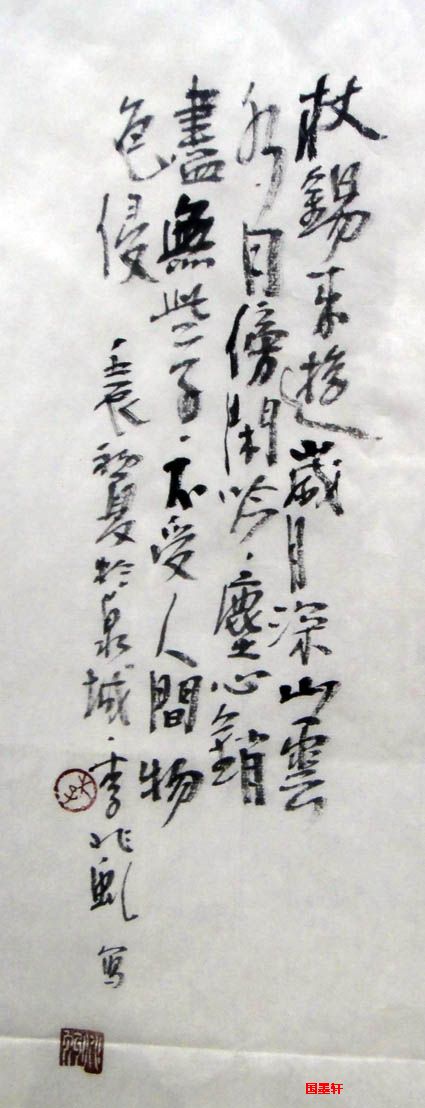 杖錫来遊歲月深山雲
水月傍閑吟塵心銷
盡無些子不受人間物
色侵 壬辰初夏於泉城 李兆虬 寫
国墨轩